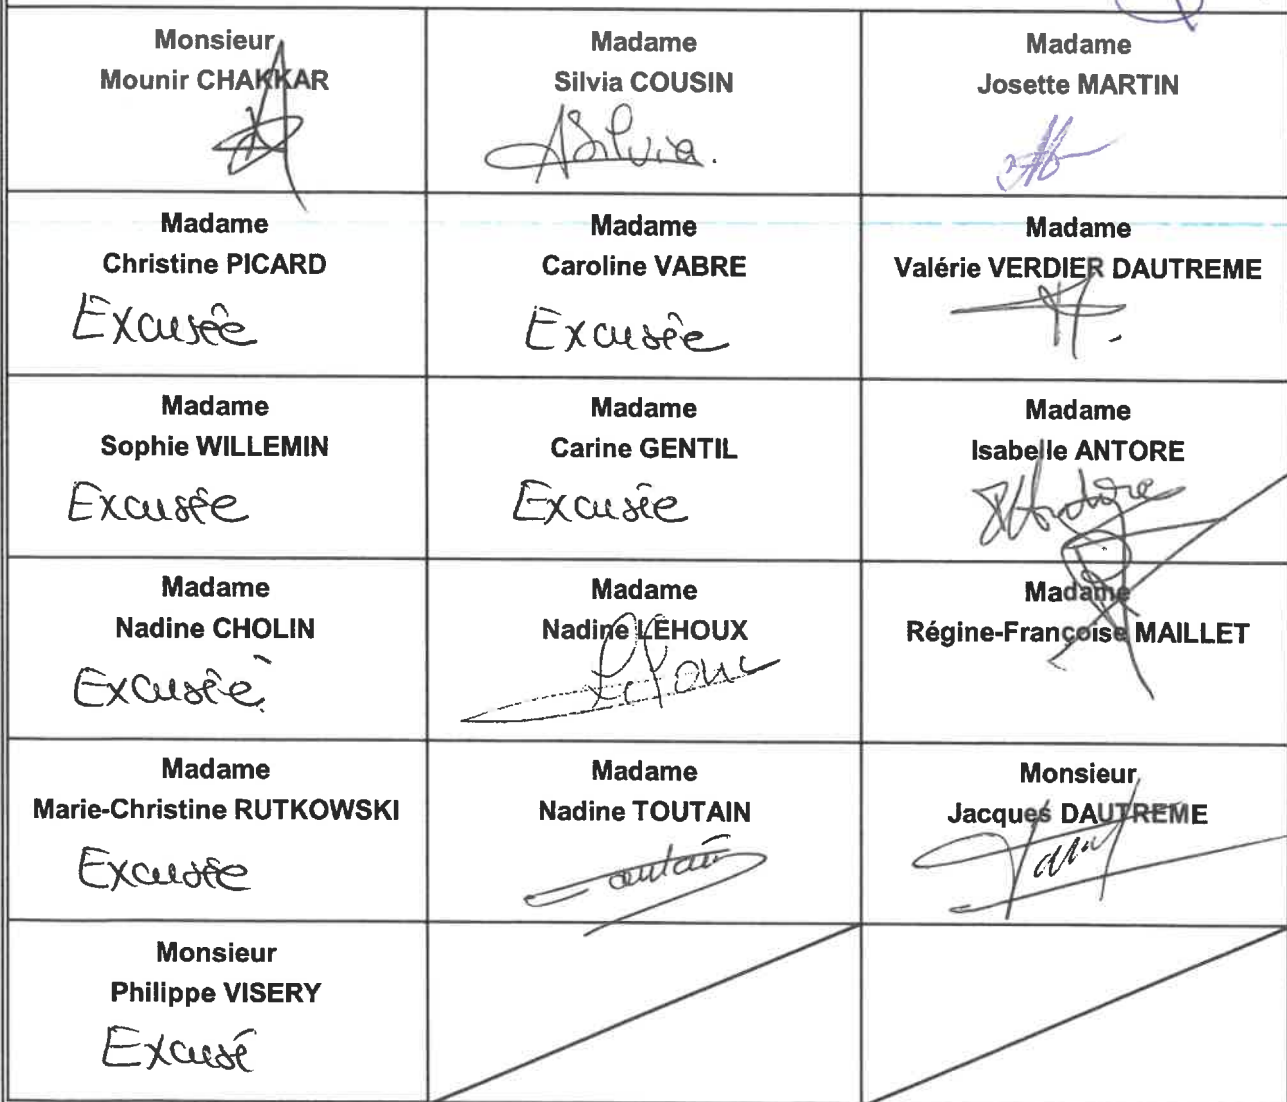 Monsieur
Mounir CHAKKAR
Madame
Silvia COUSIN
Silvia.
Madame
Josette MARTIN
Madame
Christine PICARD
Excusée
Madame
Caroline VABRE
Excusée
Madame
Valérie VERDIER DAUTREME
Madame
Sophie WILLEMIN
Excusée
Madame
Carine GENTIL
Excusée
Madame
Isabelle ANTORE
Madame
Nadine CHOLIN
Excusée
Madame
Nadine LEHOUX
Madame
Régine-Françoise MAILLET
Madame
Marie-Christine RUTKOWSKI
Excusée
Madame
Nadine TOUTAIN
Monsieur
Jacques DAUTREME
Monsieur
Philippe VISERY
Excusé